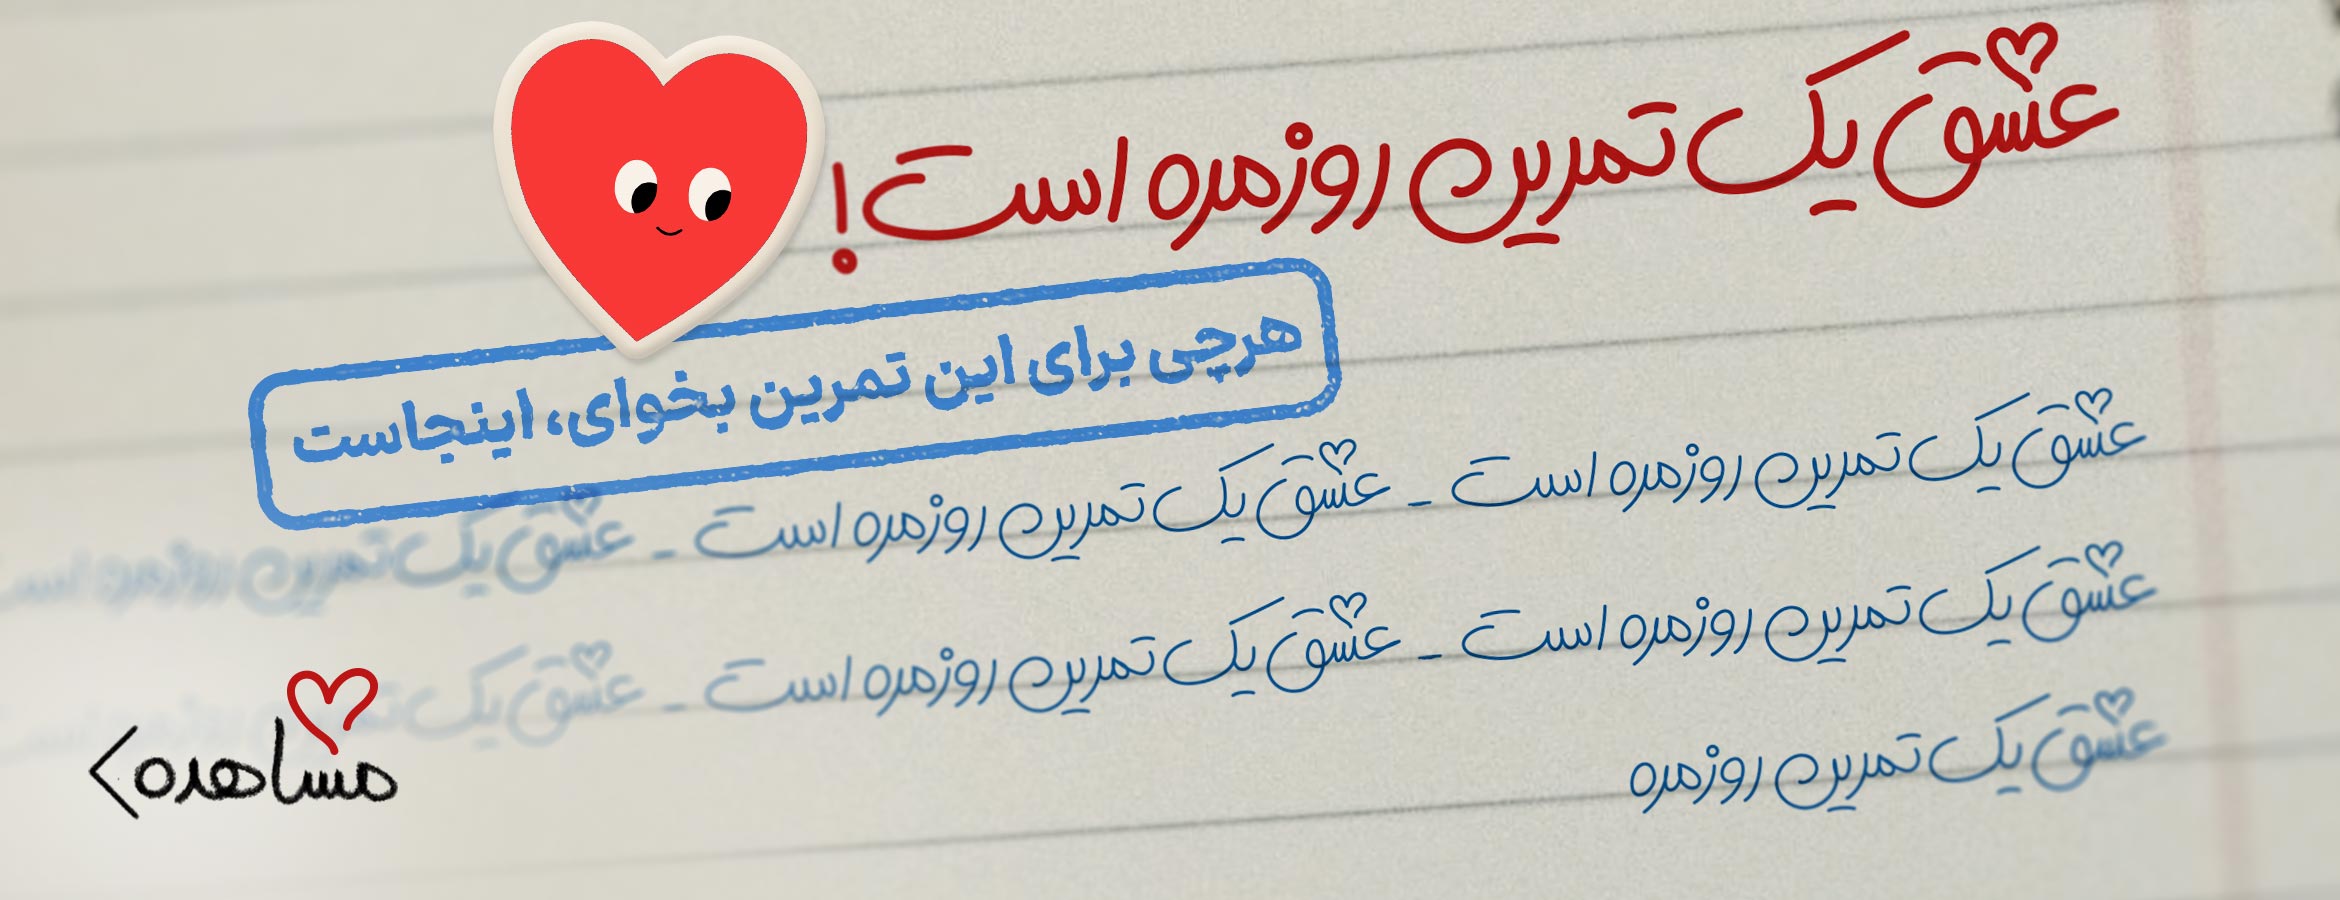 عشق یک تمرین روزمره است!
هرچی برای این تمرین بخوای، اینجاست
عشق یک تمرین روزمره است - عشق یک تمرین روزمره است - عشق یک تمرین روزمره است
عشق یک تمرین روزمره است - عشق یک تمرین روزمره است - عشق یک تمرین روزمره است
عشق یک تمرین روزمره
مشاهده >